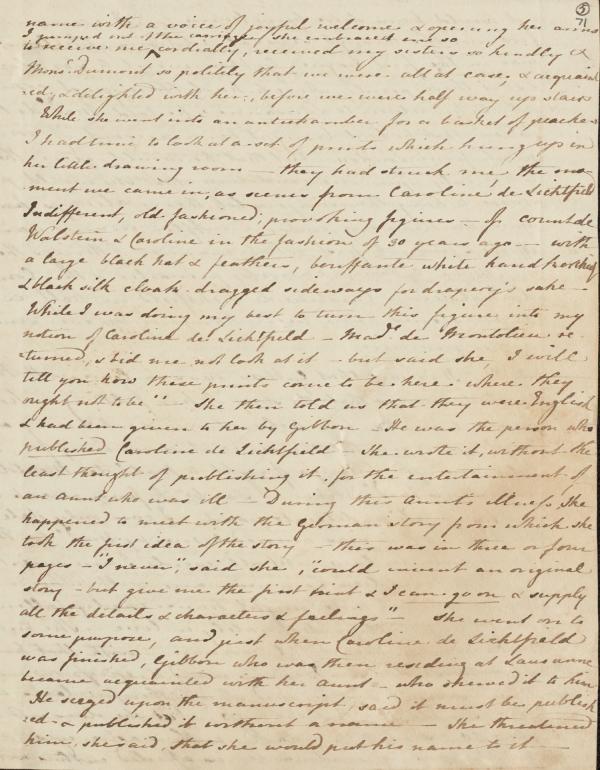 5
71
name with a voice of joyful welcome & opening her arms
I jumped out of the carriage & she embraced me so
to receive me, cordially, received my sisters so kindly &
Monsr Dumont so politely that we were all at ease, & acquaint
-ed, & delighted with her, before we were half way up stairs
While she went into an antichamber for a basket of peaches
I had time to look at a set of prints which hung up in
her little drawing room – they had struck me the mo-
ment we came in, as scenes from Caroline de Lichtfield
Indifferent, old fashioned, provoking figures – Of count de
Walstein & Caroline in the fashion of 30 years ago – with
a large black hat & feathers, bouffante white hand kerchief
& black silk cloak dragged sideways for drapery's sake –
While I was doing my best to turn this figure into my
notion of Caroline de Lichtfeld – Made de Montolieu re-
turned, & bid me not look at it – but said she, I will
tell you how these prints come to be here where they
ought not to be" – She then told us that they were English
& had been given to her by Gibbon – He was the person who
published Caroline de Lichtfield – She wrote it, without the
least thought of publishing it, for the entertainment of
an aunt who was ill – During this Aunt's illness, she
happened to meet with the German story from which she
took the first idea of the story – this was in three or four
pages – "I never", said she, "could invent an original
story – but give me the first hint & I can go on & supply
all the details & characters & feelings" – She went on to
some purpose, and just when Caroline de Lichtfield
was finished, Gibbon who was then residing at Lausanne
became acquainted with her Aunt – who shewed it to him
He seized upon the manuscript, said it must be publish
-ed – & published it without a name – She threatened
him, she said, that she would put his name to it –